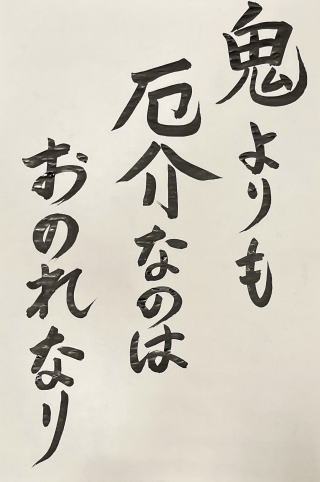 鬼よりも
厄介なのは
おのれなり